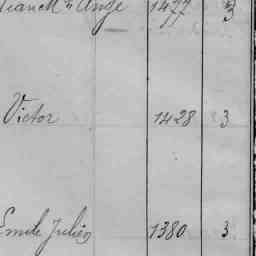 Ange 1477 3
Victor 1428 3
Emile Julien 1380 3